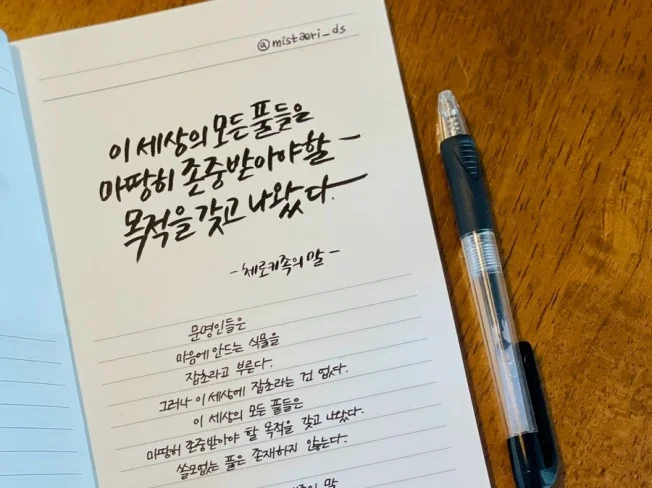 @mistaeri_ds
이 세상의 모든 풀들을
마땅히 존중받아야할
목적을 갖고 나왔다.
- 체로키족의 말 -
문명인들은
마음에 안드는 식물을
잡초라고 부른다.
그러나 이 세상에 잡초라는 건 없다.
이 세상의 모든 풀들은
마땅히 존중받아야 할 목적을 갖고 나왔다.
쓸모없는 풀은 존재하지 않는다.
족의 말